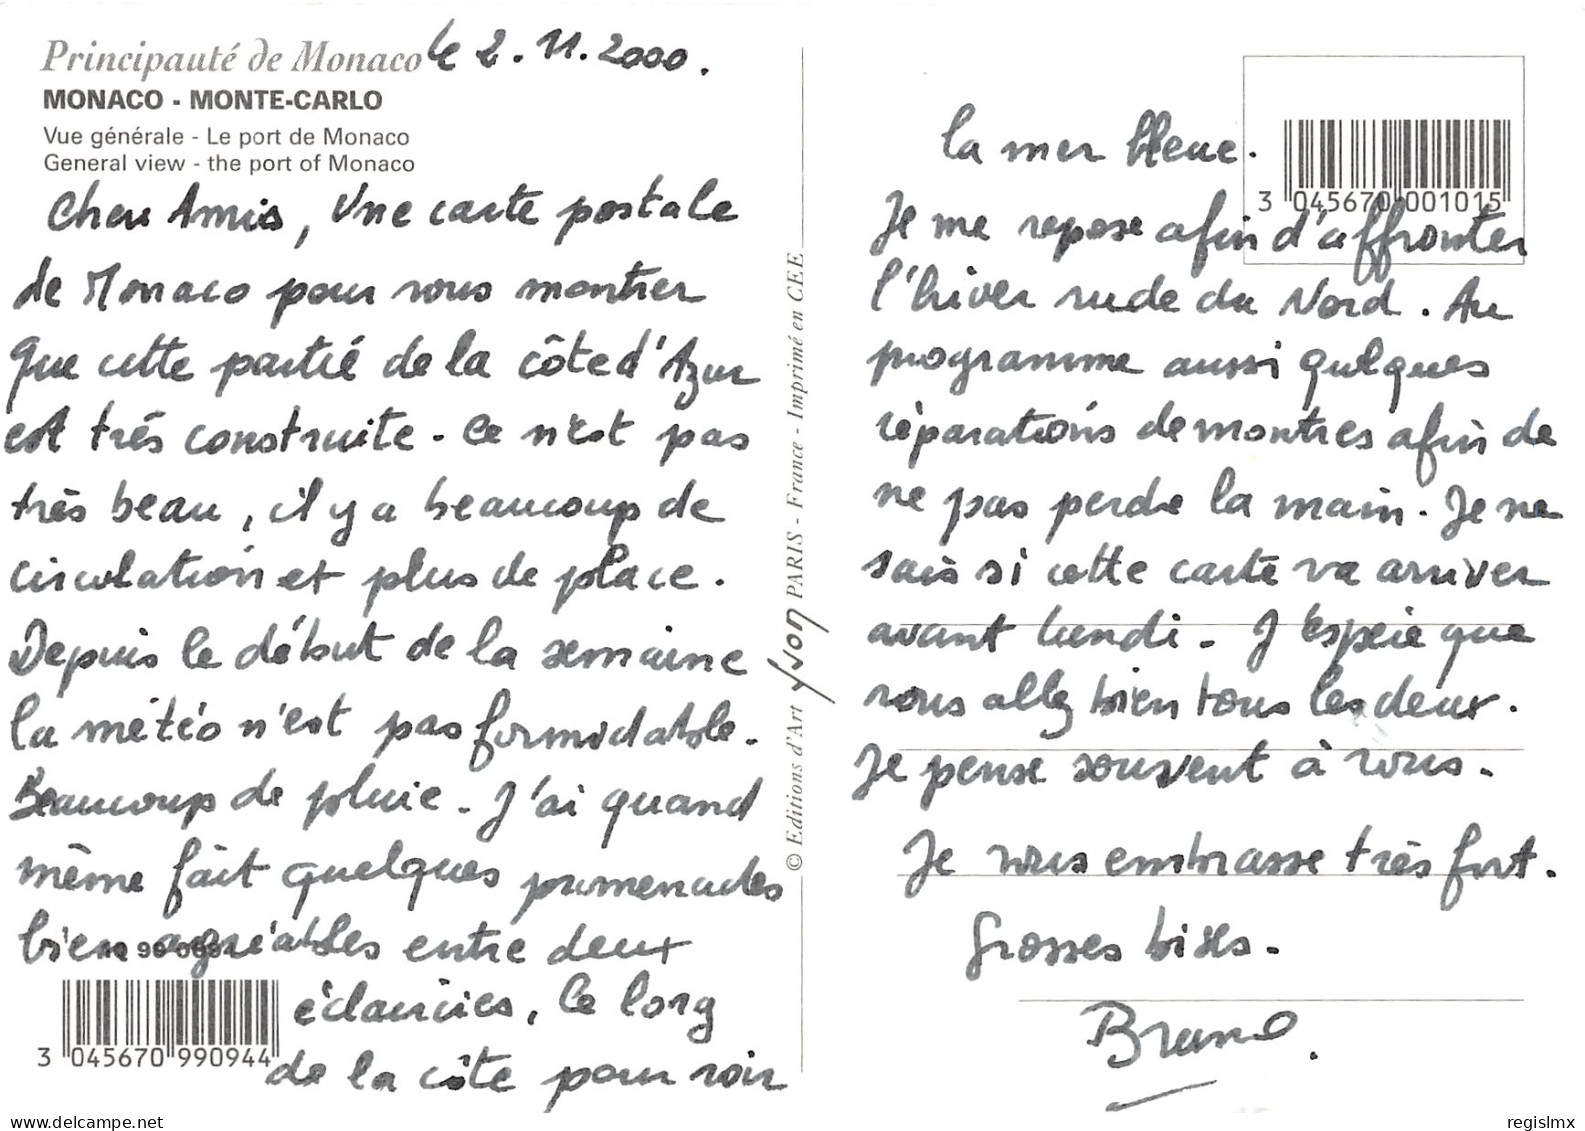 Principauté de Monaco le 2.11.2000.
MONACO - MONTE-CARLO
Vue générale - Le port de Monaco
General view - the port of Monaco
Cher Amis, Une carte postale
de Monaco pour vous montrer
que cette partie de la côte d'Azur
est très construite. Ce n'est pas
très beau, il y a beaucoup de
circulation et plus de place.
Depuis le début de la semaine
la météo n'est pas formidable.
Beaucoup de pluie. J'ai quand
même fait quelques promenades
bien agréables entre deux
éclaircies, le long
de la côte pour voir
3 045670 990944
© Editions d'Art Yvon PARIS - France - Imprimé en CEE
3 045670 001015
la mer bleue.
Je me repose afin d'affronter
l'hiver rude du Nord. Au
programme aussi quelques
réparations de montres afin de
ne pas perdre la main. Je ne
sais si cette carte va arriver
avant lundi. J'espère que
vous allez bien tous les deux.
Je pense souvent à vous.
Je vous embrasse très fort.
Grosses bises.
Bruno.
www.delcampe.net
regislmx